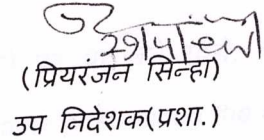 (प्रियरंजन सिन्हा)
उप निदेशक(प्रशा.)